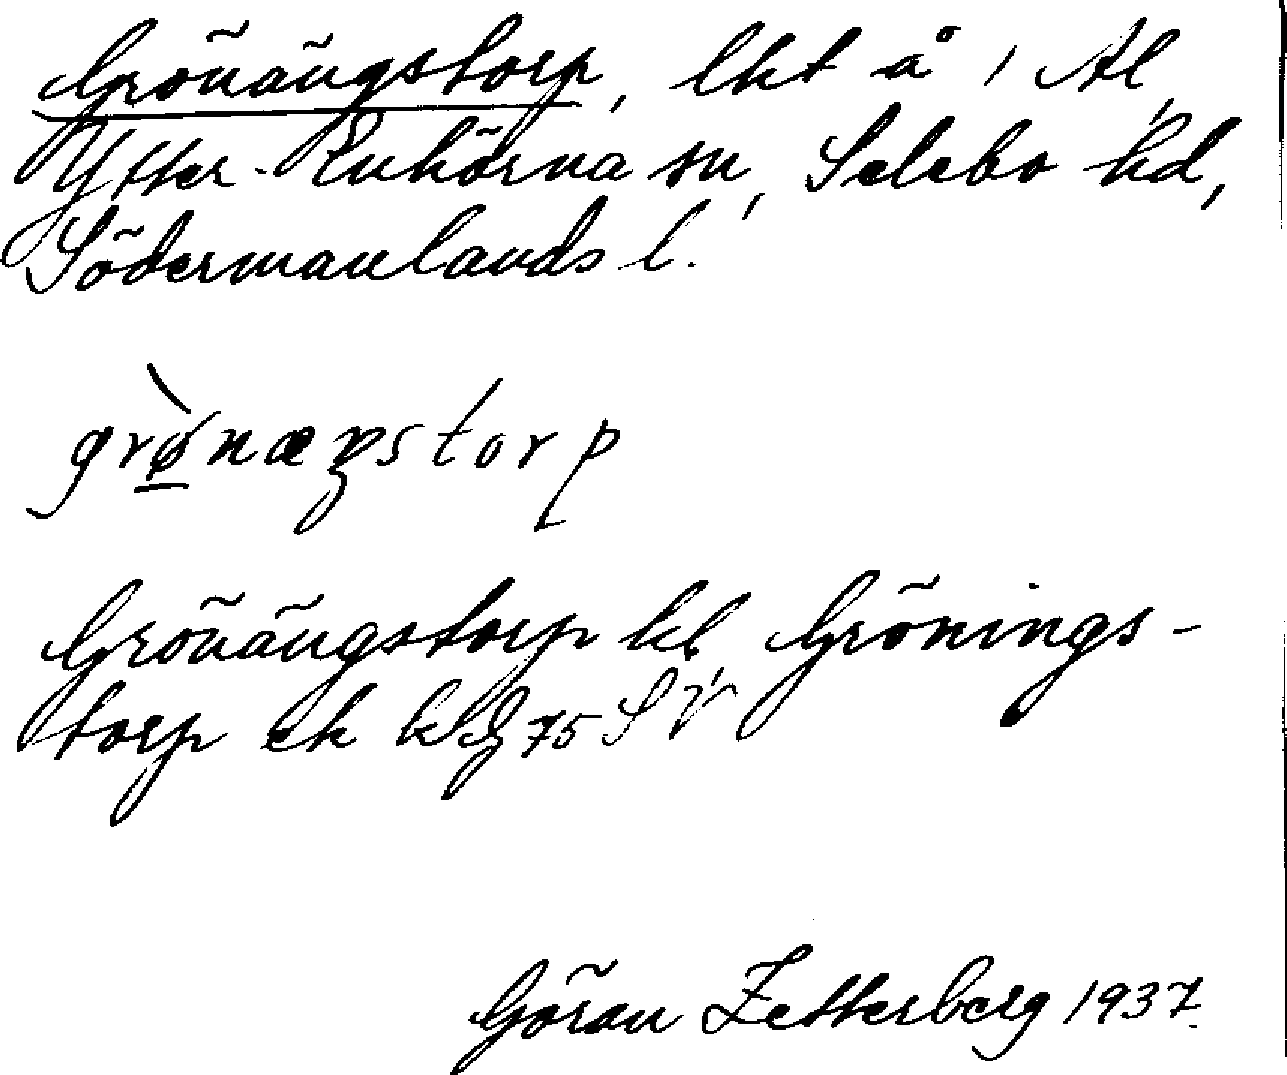 Grönängstorp, lht å 1 Al,
Ytter-Enhörna sn, Selebo hd,
Södermanlands l.
grø̀næŋstorp
Grönängstorp hl, Grönings-
torp ek bl 75 SV
Göran Zetterberg 1937.